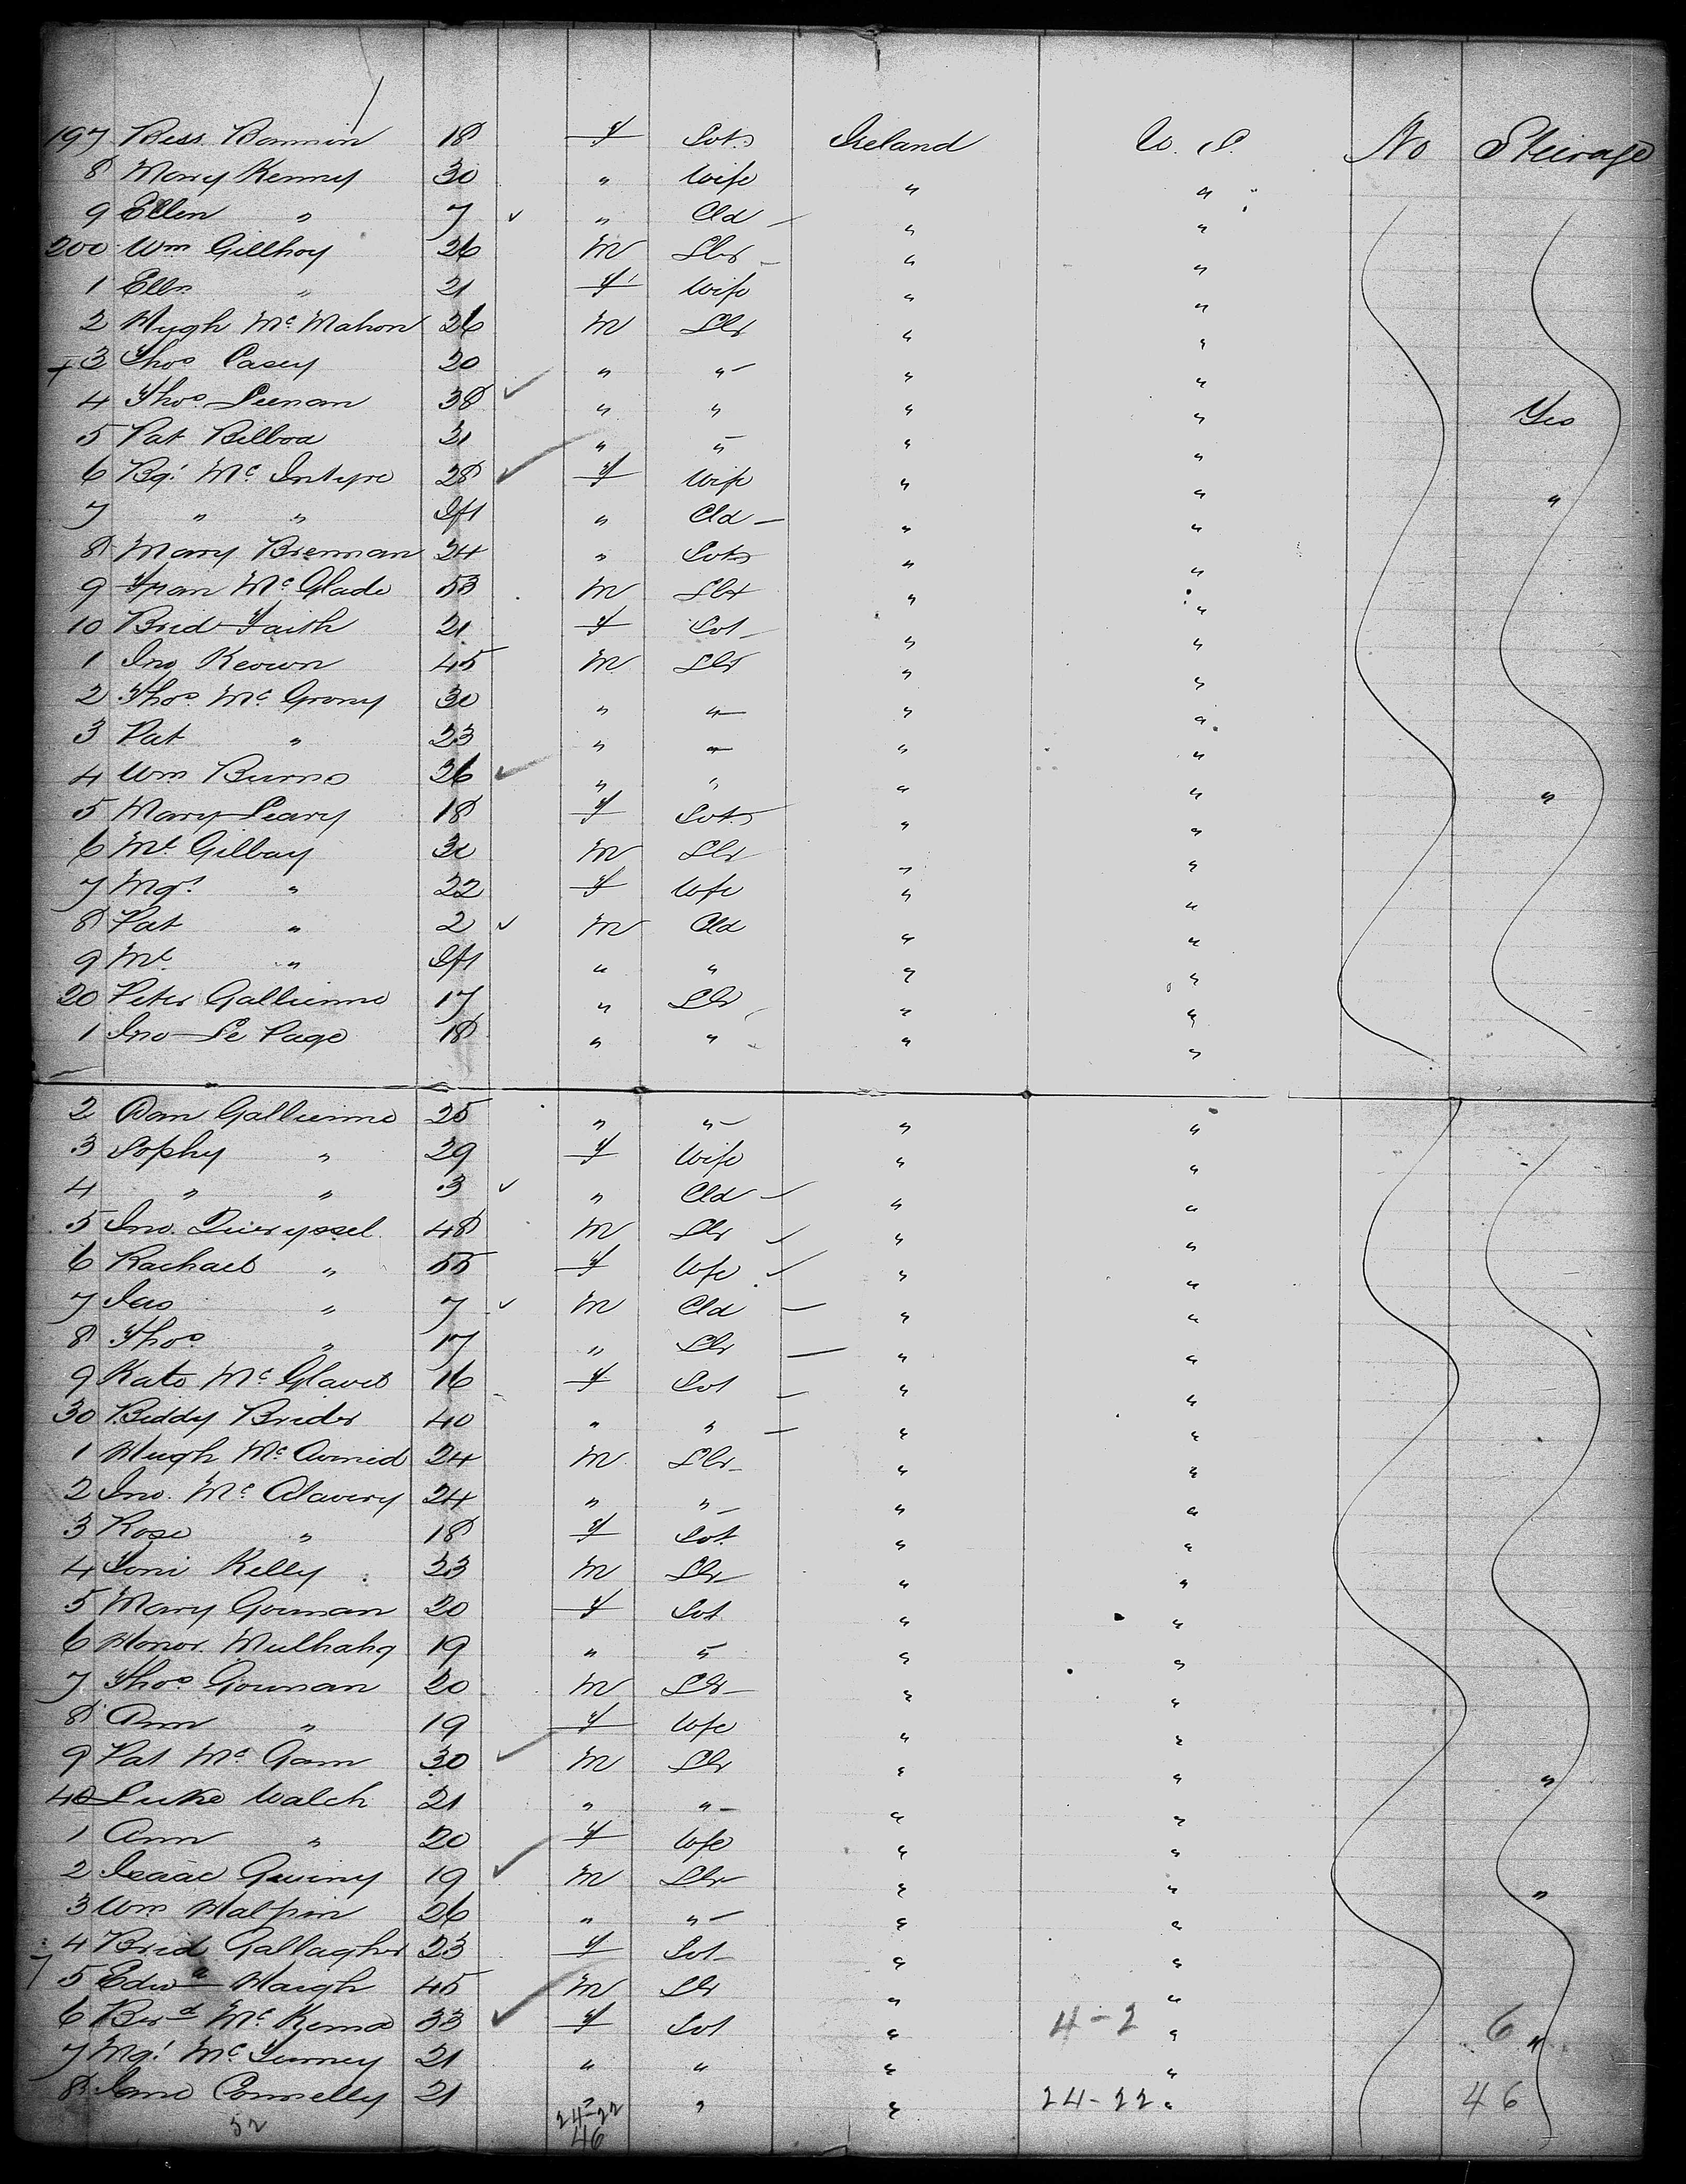 197 Bess Bannin 18 f Svt. Ireland U. S. No Steerage
8 Mary Kenny 30 " Wife " "
9 Ellen " 7 " Cld " "
200 Wm Gillhoy 26 M Lbr " "
1 Elln " 21 f Wife " "
2 Hugh McMahon 26 M Lbr " "
3 Thos Casey 20 " " " "
4 Thos Leenan 38 " " " " Yes
5 Pat Bilboa 21 " " " "
6 Bgt McIntyre 28 f Wife " " "
7 " " Inft " Cld " "
8 Mary Brennan 24 " Svt " "
9 Fran McGlade 53 M Lbr " "
10 Brid Faith 21 f Svt " "
1 Jno Keown 45 M Lbr " "
2 Thos McGrony 30 " " " "
3 Pat " 23 " " " "
4 Wm Burns 26 " " " " "
5 Mary Leary 18 f Svt " "
6 Ml Gilbay 30 M Lbr " "
7 Mgt " 22 f Wfe " "
8 Pat " 2 M Cld " "
9 Ml " Inft " " " "
20 Peter Gallienne 17 " Lbr " "
1 Jno Le Page 18 " " " "
2 Dan Gallienne 25 " " " "
3 Sophy " 29 f Wife " "
4 " " 3 " Cld " "
5 Jno. 48 M Lbr " "
6 Rachael " 55 f Wfe " "
7 " 7 M Cld " "
8 Thos " 17 " Lbr " "
9 Kate Mc 16 f Svt " "
30 Biddy Brider 40 " " " "
1 Hugh Mc 24 M Lbr " "
2 Jno. McAlavery 24 " " " "
3 Rose " 18 f Svt " "
4 Kelly 23 M Lbr " "
5 Mary Gorman 20 f Svt " "
6 Honor Mulhahy 19 " " " "
7 Thos Gorman 20 M Lbr " "
8 Ann " 19 f Wfe " "
9 Pat McGann 30 M Lbr " " "
40 Luke Walch 21 " " " "
1 Ann " 20 f Wfe " "
2 Isaac 19 M Lbr " " "
3 Wm Halpin 26 " " " "
4 Brid Gallagher 23 f Svt " "
5 Edwd Haigh 45 M Lbr " "
6 Berd McKenna 33 f Svt " 4-2 " 6 "
7 Mgt Mc 21 " " " "
8 Jane Connelly 21 " " " 24-22 " 46
52 24-22
46